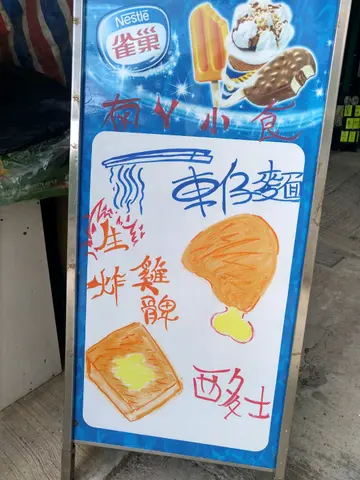 Nestlé
雀巢
有Y小食
車仔麵
生炸雞髀
西多士